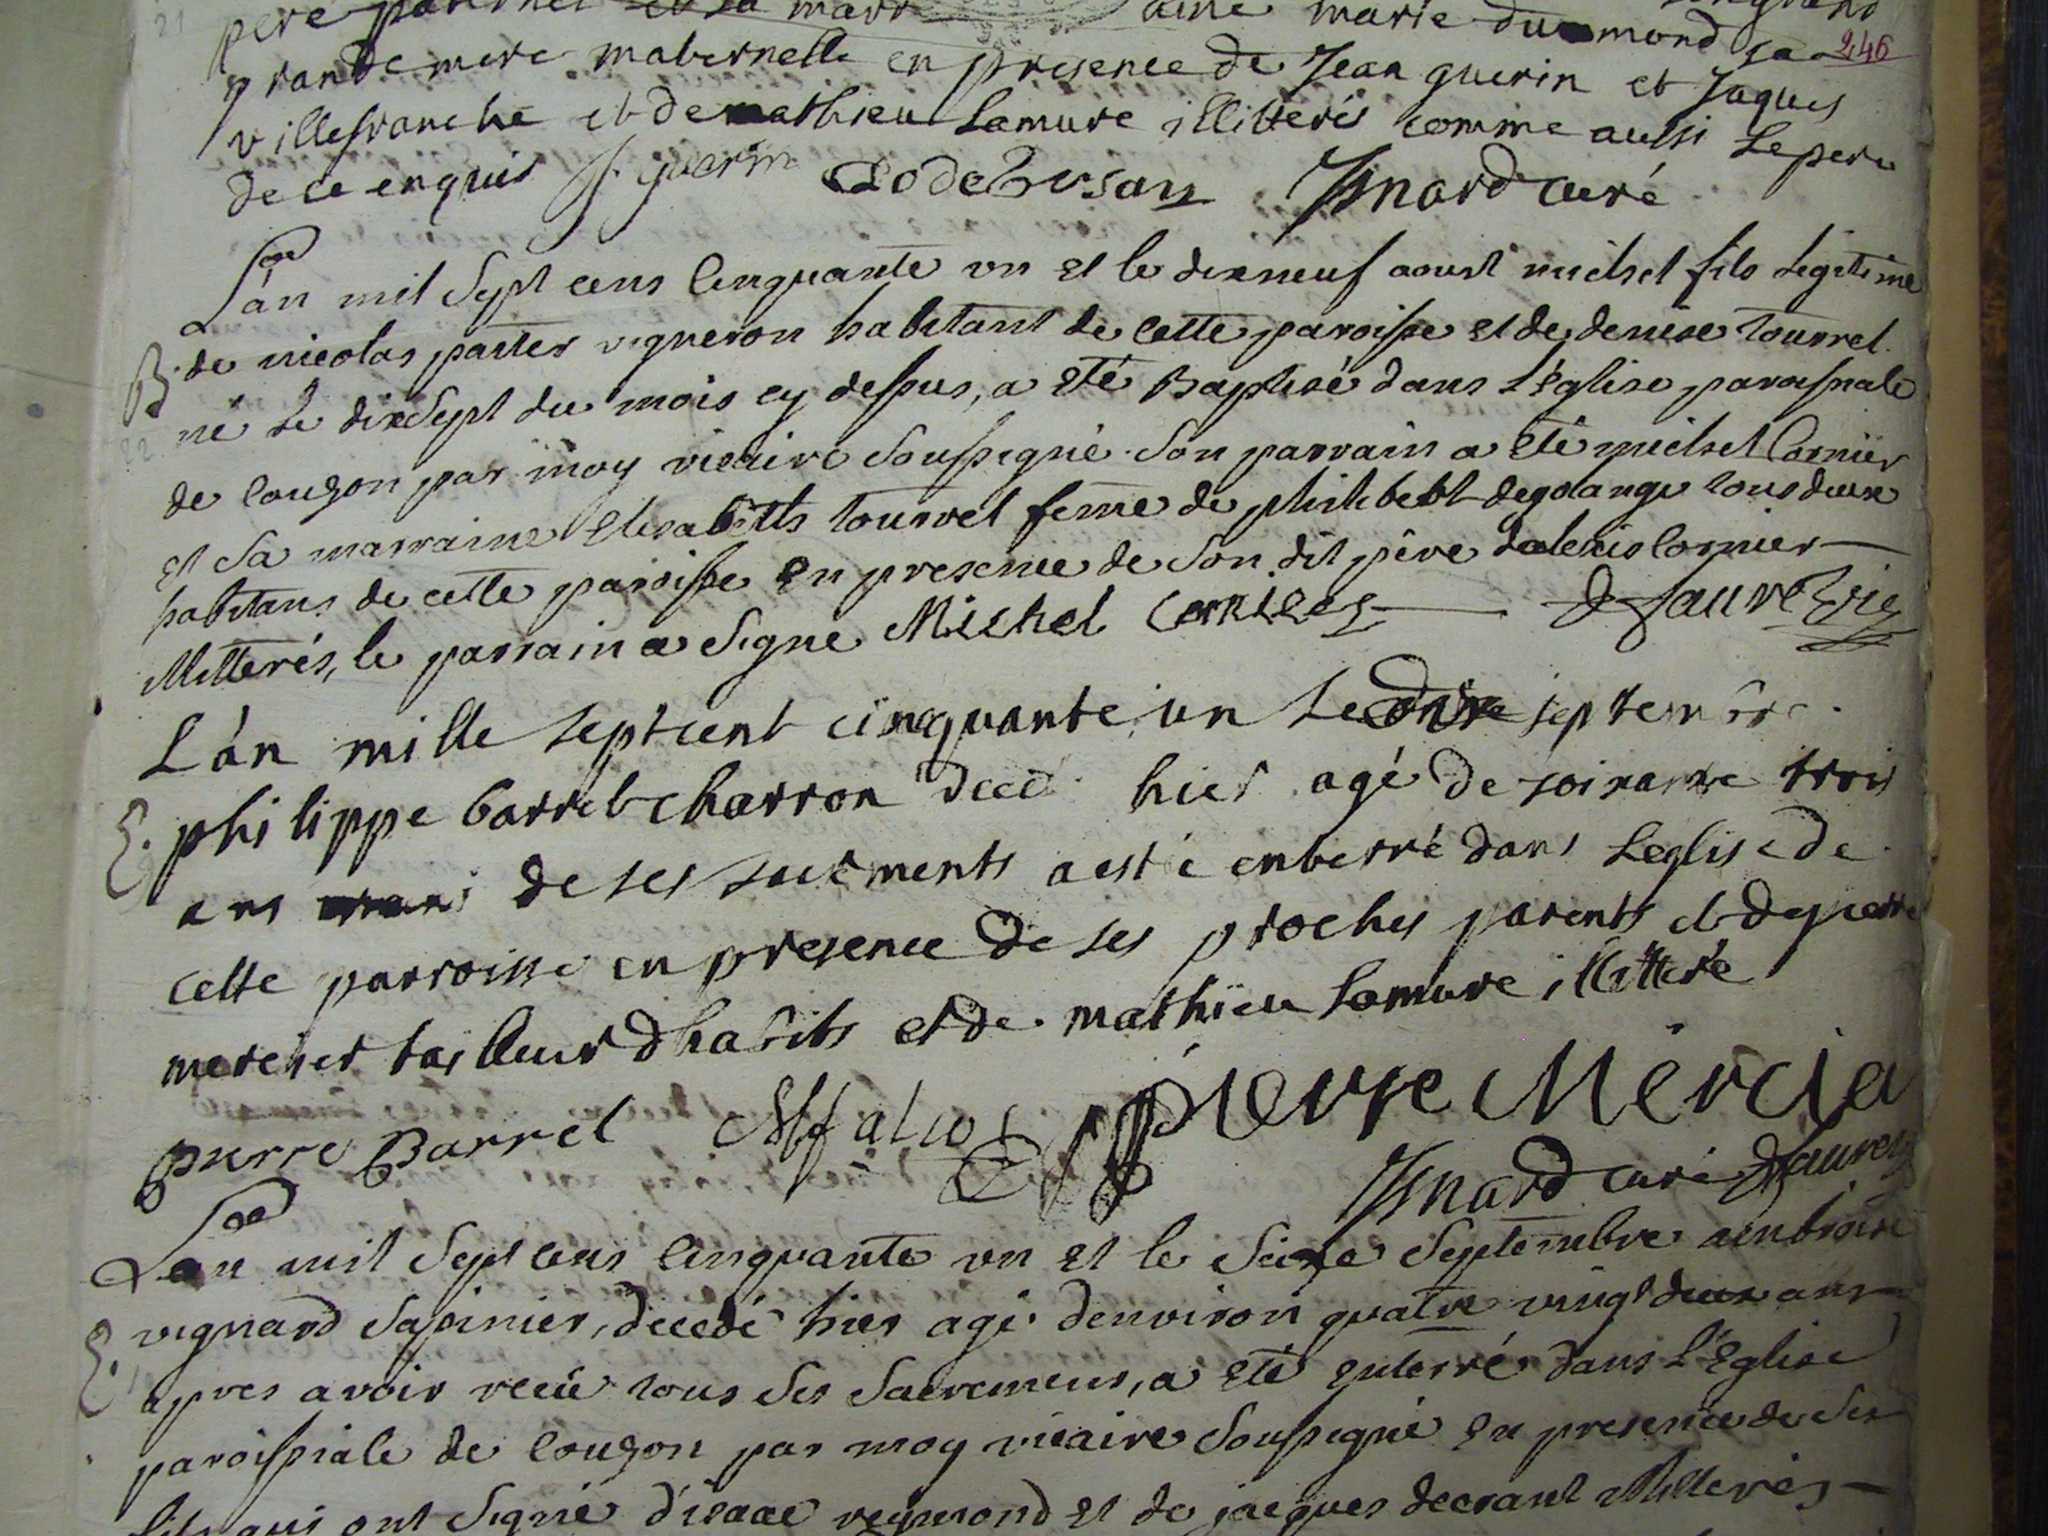 pere paternel et sa marraine marie dumond sa
246
grande mere maternelle en presence de Jean guerin et Jaques
villefranche et de mathieu Lamure illitterés comme aussi Le pere
de ce enquis J. guerin Isnard curé
L'an mil sept cens Cinquante un et le dixneuf aoust michel fils Legitime
B. de nicolas patter vigneron habitant de cette paroisse et de denise tourvel
né Le dixsept du mois cy dessus, a eté Baptisé dans L'église paroissiale
de Couzon par moy vicaire soussigné. son parrain a eté michel Cornier
et sa marraine elisabeth tourvel feme de philibert degrange tous deux
habitans de cette paroisse en presence de son dit père d'alexis Cornier
illitterés, le parrain a signé Michel Cornier
L'an mille sept cent cinquante un Le septembre
E. philippe barrel charron deced hier agé de soixante trois
ans muni de ses sacrements a esté enterré dans L'eglise de
cette parroisse en presence de ses proches parents et de pierre
mercier tailleur d'habits et de mathieu Lamure illitteré
pierre Barrel pierre Mercier
Isnard curé
L'an mil sept cens Cinquante un et le seize septembre ambroise
E. vignard sapinier, decedé hier agé d'environ quatre vingt deux ans
apres avoir reçu tous ses sacremens, a eté enterré dans L'Eglise
paroissiale de Couzon par moy vicaire soussigné en presence de ses
fils qui ont signé d'isaac reymond et de jacques decrant illiterés